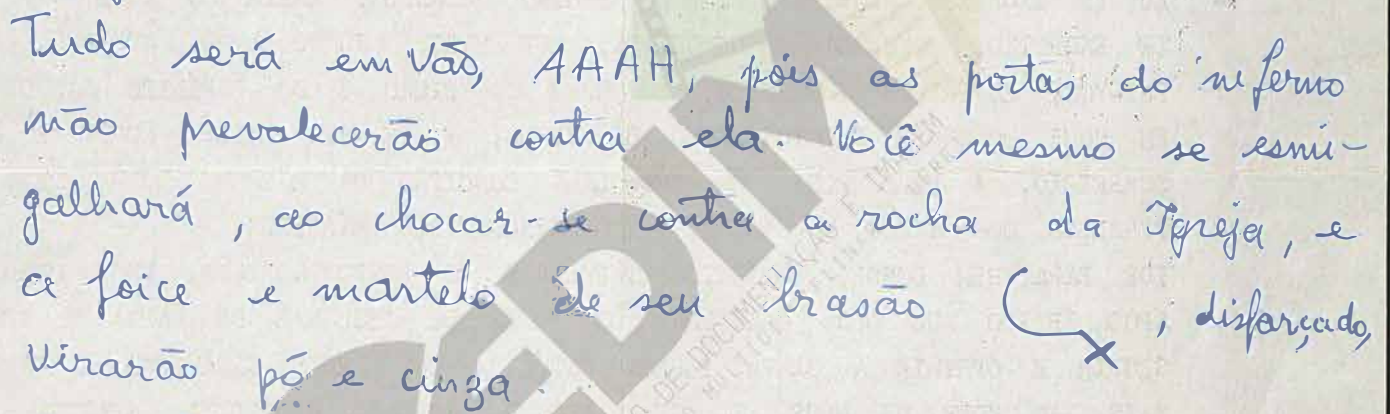 Tudo será em vão, AAAH, pois as portas do inferno
não prevalecerão contra ela. Você mesmo se esmi-
galhará, ao chocar-se contra a rocha da Igreja, e
a foice e martelo de seu brasão , disfarçado,
virarão pó e cinza.
CEDIM